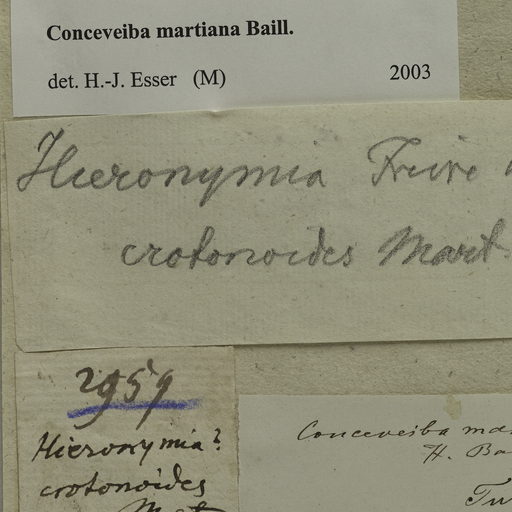 Conceveiba martiana Baill.
det. H.-J. Esser (M) 2003
Hieronymia Freire
crotonoides Mart
2959
Hieronymia?
crotonoides
Mart
Conceveiba mar
H. Ba